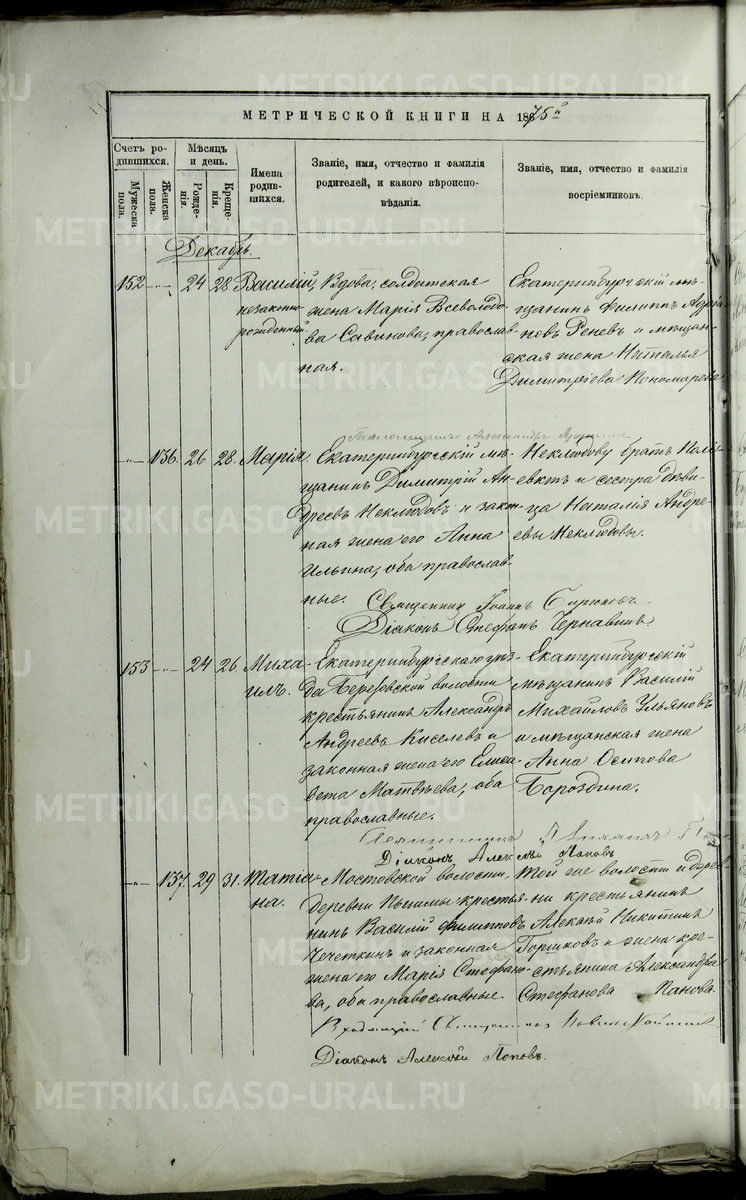 МЕТРИЧЕСКОЙ КНИГИ НА 1875 г
Счетъ родившихся.
Мужеска пола.
Женска пола.
Мѣсяцъ и день.
Рожденія.
Крещенія.
Имена родившихся.
Званіе, имя, отчество и фамилія
родителей, и какого вѣроиспо-
вѣданія.
Званіе, имя, отчество и фамилія
воспріемниковъ.
Декабрь.
152 24 28 Василій,
незаконно
рожденный.
Вдова, солдатская
жена Марія Всеволодо-
ва Савинова, православ-
ная.
Екатеринбургскій мѣ-
щанинъ Филиппъ Адріа-
новъ Реневъ и мѣщан-
ская жена Наталья
Димитріева Пономарева.
136. 26 28. Марія.
Екатеринбургскій мѣ-
щанинъ Димитрій Ан-
дреевъ Неклюдовъ и закон-
ная жена его Анна
Ильина, оба православ-
ные.
Неклюдову братъ
и сестра дѣви-
ца Наталія Андре-
евы Неклюдовы.
Священникъ Іоаннъ
Діаконъ Стефанъ Чернавинъ.
153 24 26. Миха-
илъ.
Екатеринбургскаго уѣз-
да Березовской волости
крестьянинъ Александръ
Андреевъ Киселевъ и
законная жена его Елиса-
вета Матвѣева, оба
православные.
Екатеринбургскій
мѣщанинъ Василій
Михайловъ Ульяновъ
и мѣщанская жена
Анна Осипова
Бороздина.
Діаконъ Алексѣй Поповъ
137. 29 31. Татіа-
на.
Мостовской волости,
деревни Пышмы крестья-
нинъ Василій Филипповъ
Чечеткинъ и законная
жена его Марія Стефано-
ва, оба православные.
Той же волости и дерев-
ни крестьянинъ
Алексѣй Никитинъ
Горшковъ и жена кре-
стьянина Александра
Стефанова Панова.
Діаконъ Алексѣй Поповъ.
METRIKI.GASO-URAL.RU